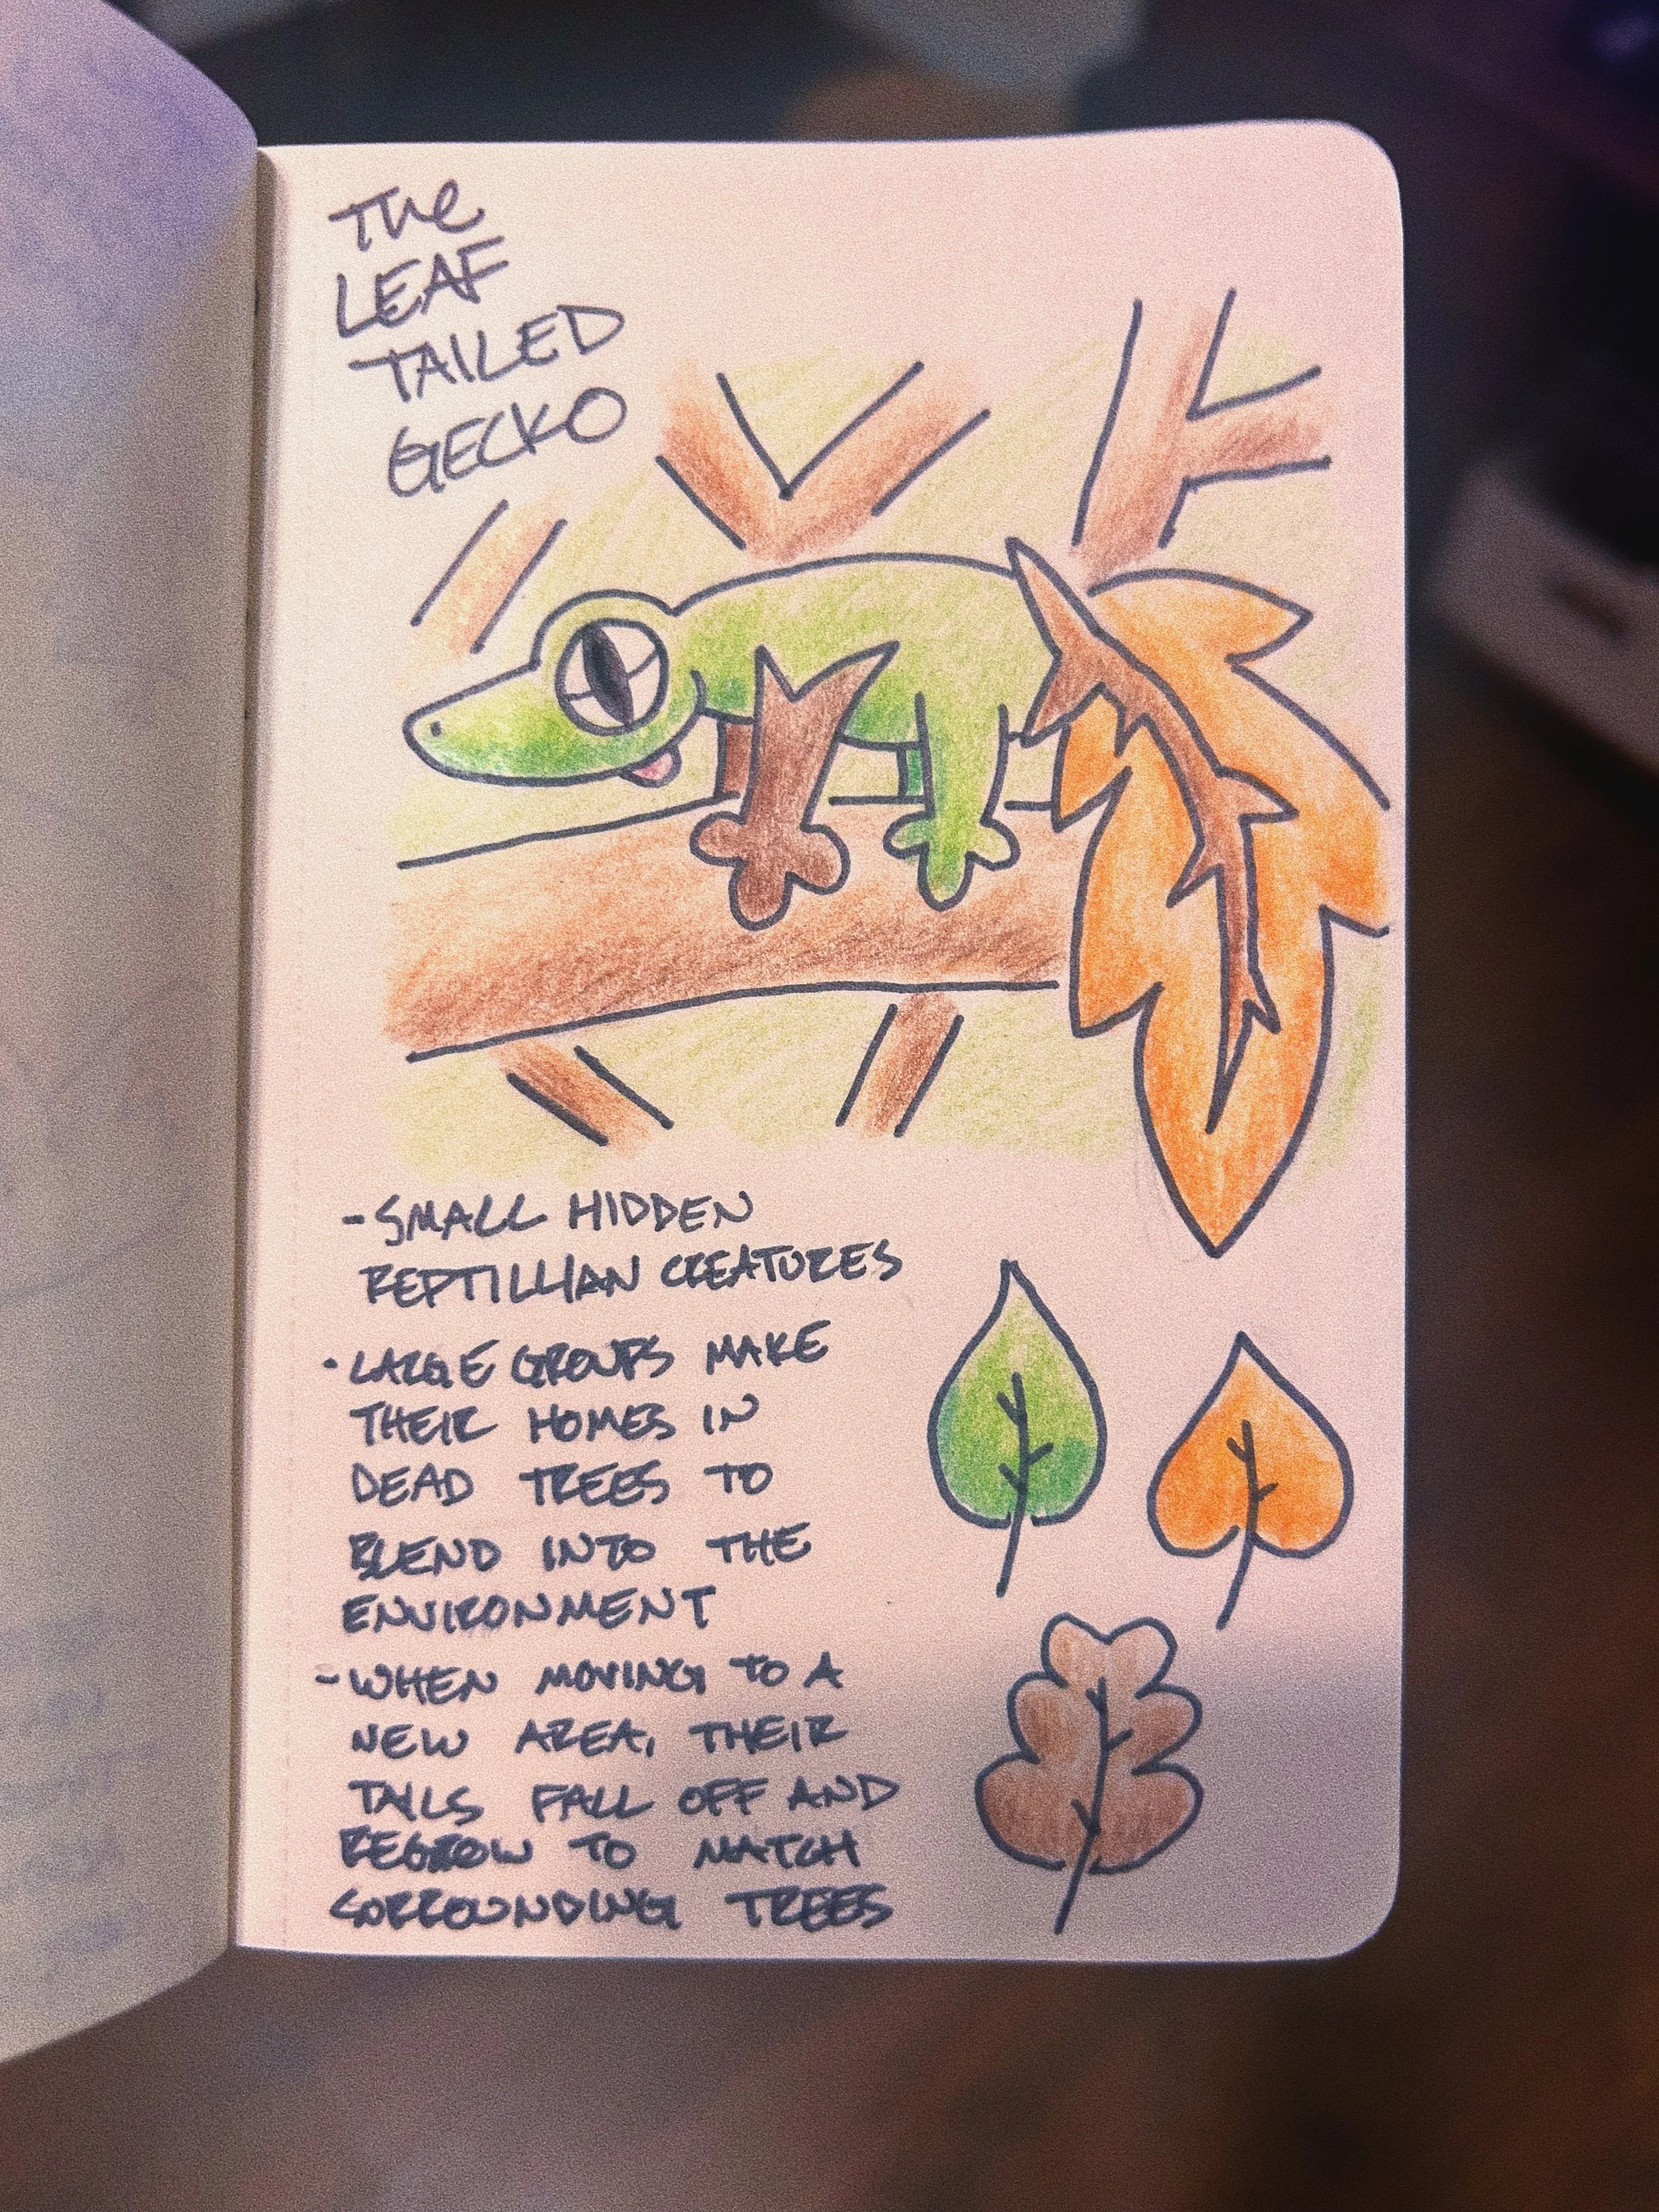 The
LEAF
TAILED
GECKO
- SMALL HIDDEN
REPTILLIAN CREATURES
• LARGE GROUPS MAKE
THEIR HOMES IN
DEAD TREES TO
BLEND INTO THE
ENVIRONMENT
- WHEN MOVING TO A
NEW AREA, THEIR
TAILS FALL OFF AND
REGROW TO MATCH
SORROUNDING TREES